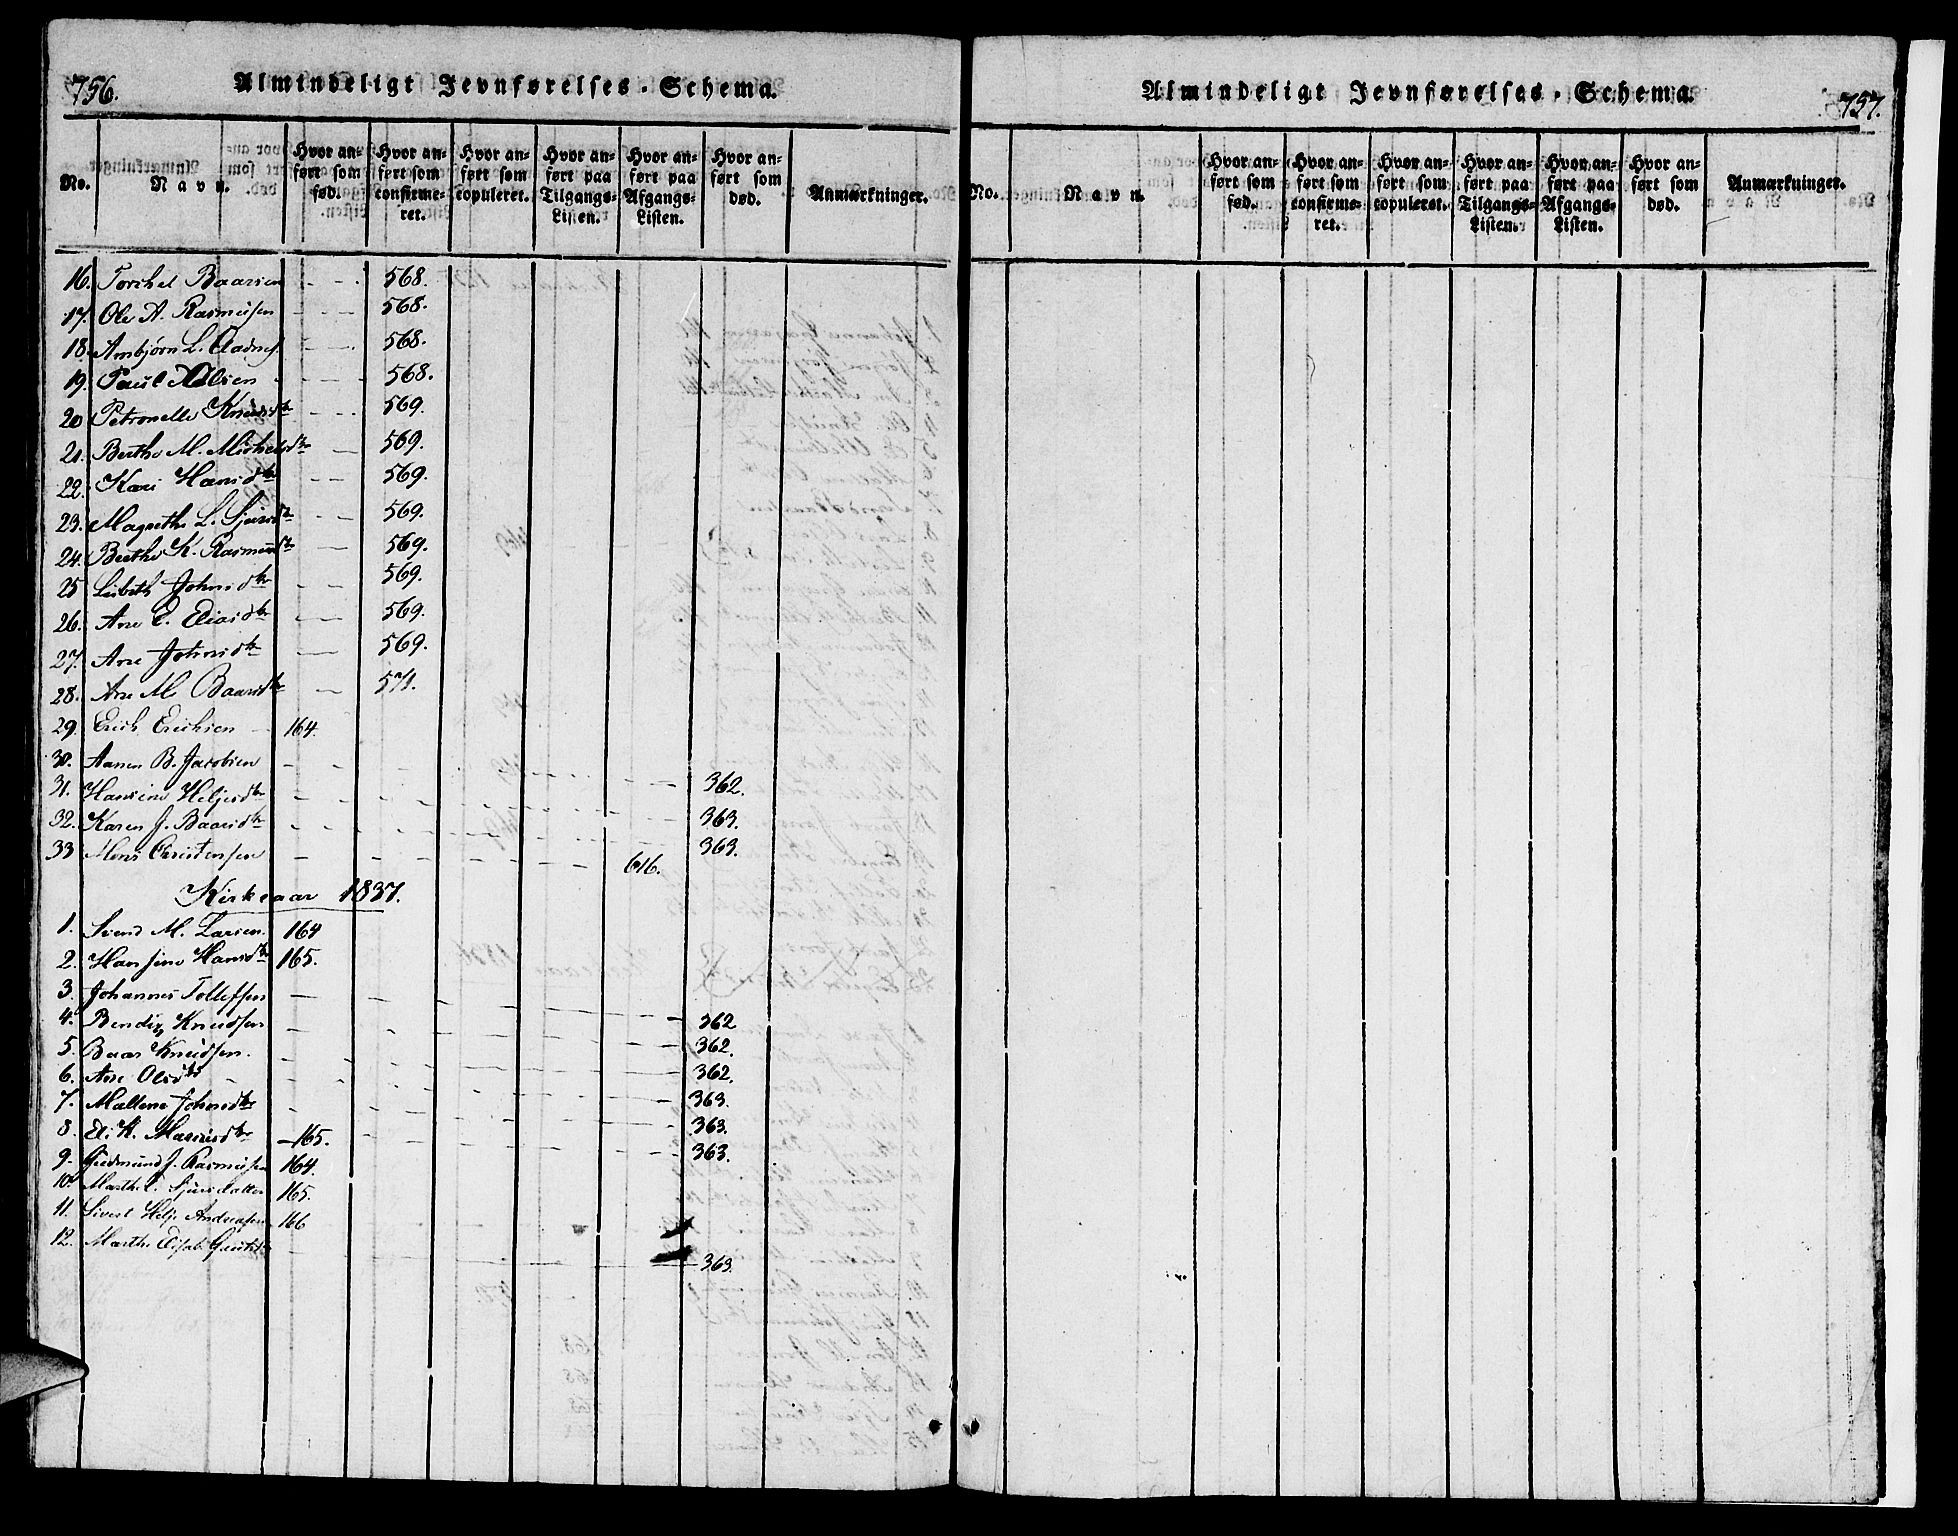 756.
Almindeligt Jevnførelses-Schema.
No.
Navn.
Hvor anført som fød.
Hvor anført som confirmeret.
Hvor anført som copuleret.
Hvor anført paa Tilgangs-Listen.
Hvor anført paa Afgangs-Listen.
Hvor anført som død.
Anmærkninger.
16. Torchel Baarsen 568.
17. Ole A. Rasmusen 568.
18. Ambjørn L. Aadnes. 568.
19. Paul Nilsen 568.
20 Petronelle Knudsdtr 569.
21. Berthe M. Michelsdtr 569.
22. Kari Hansdtr 569.
23. Magrethe L. Sjursdtr 569.
24. Berthe K. Rasmusdtr 569.
25 Lisbeth Johnsdtr 569.
26. Ane E. Eliasdtr 569.
27. Ane Johnsdtr 569.
28. Ane M. Baarsdtr 571.
29. Erich Erichsen 164.
30. Aanen B. Jacobsen 362.
31. Hansine Heljesdtr 363.
32. Karen J. Baarsdtr 363.
33 Mons Christensen 616.
Kirkeaar 1837.
1. Svend M. Larsen. 164
2. Hansine Hansdtr 165.
3. Johannes Tollefsen 362
4. Bendix Knudsen 362.
5. Baar Knudsen. 362.
6. Ane Olsdtr 363.
7. Maltene Johnsdtr 363.
8. El. K. 165. 363.
9. Gudmund J. Rasmusen 164.
10. Marthe Sjursdatter 165.
11. Sivert Helje Andreasen 166
12. Marthe Elisab. 363.
Almindeligt Jevnførelses-Schema.
757.
No.
Navn.
Hvor anført som fød.
Hvor anført som confirmeret.
Hvor anført som copuleret.
Hvor anført paa Tilgangs-Listen.
Hvor anført paa Afgangs-Listen.
Hvor anført som død.
Anmærkninger.